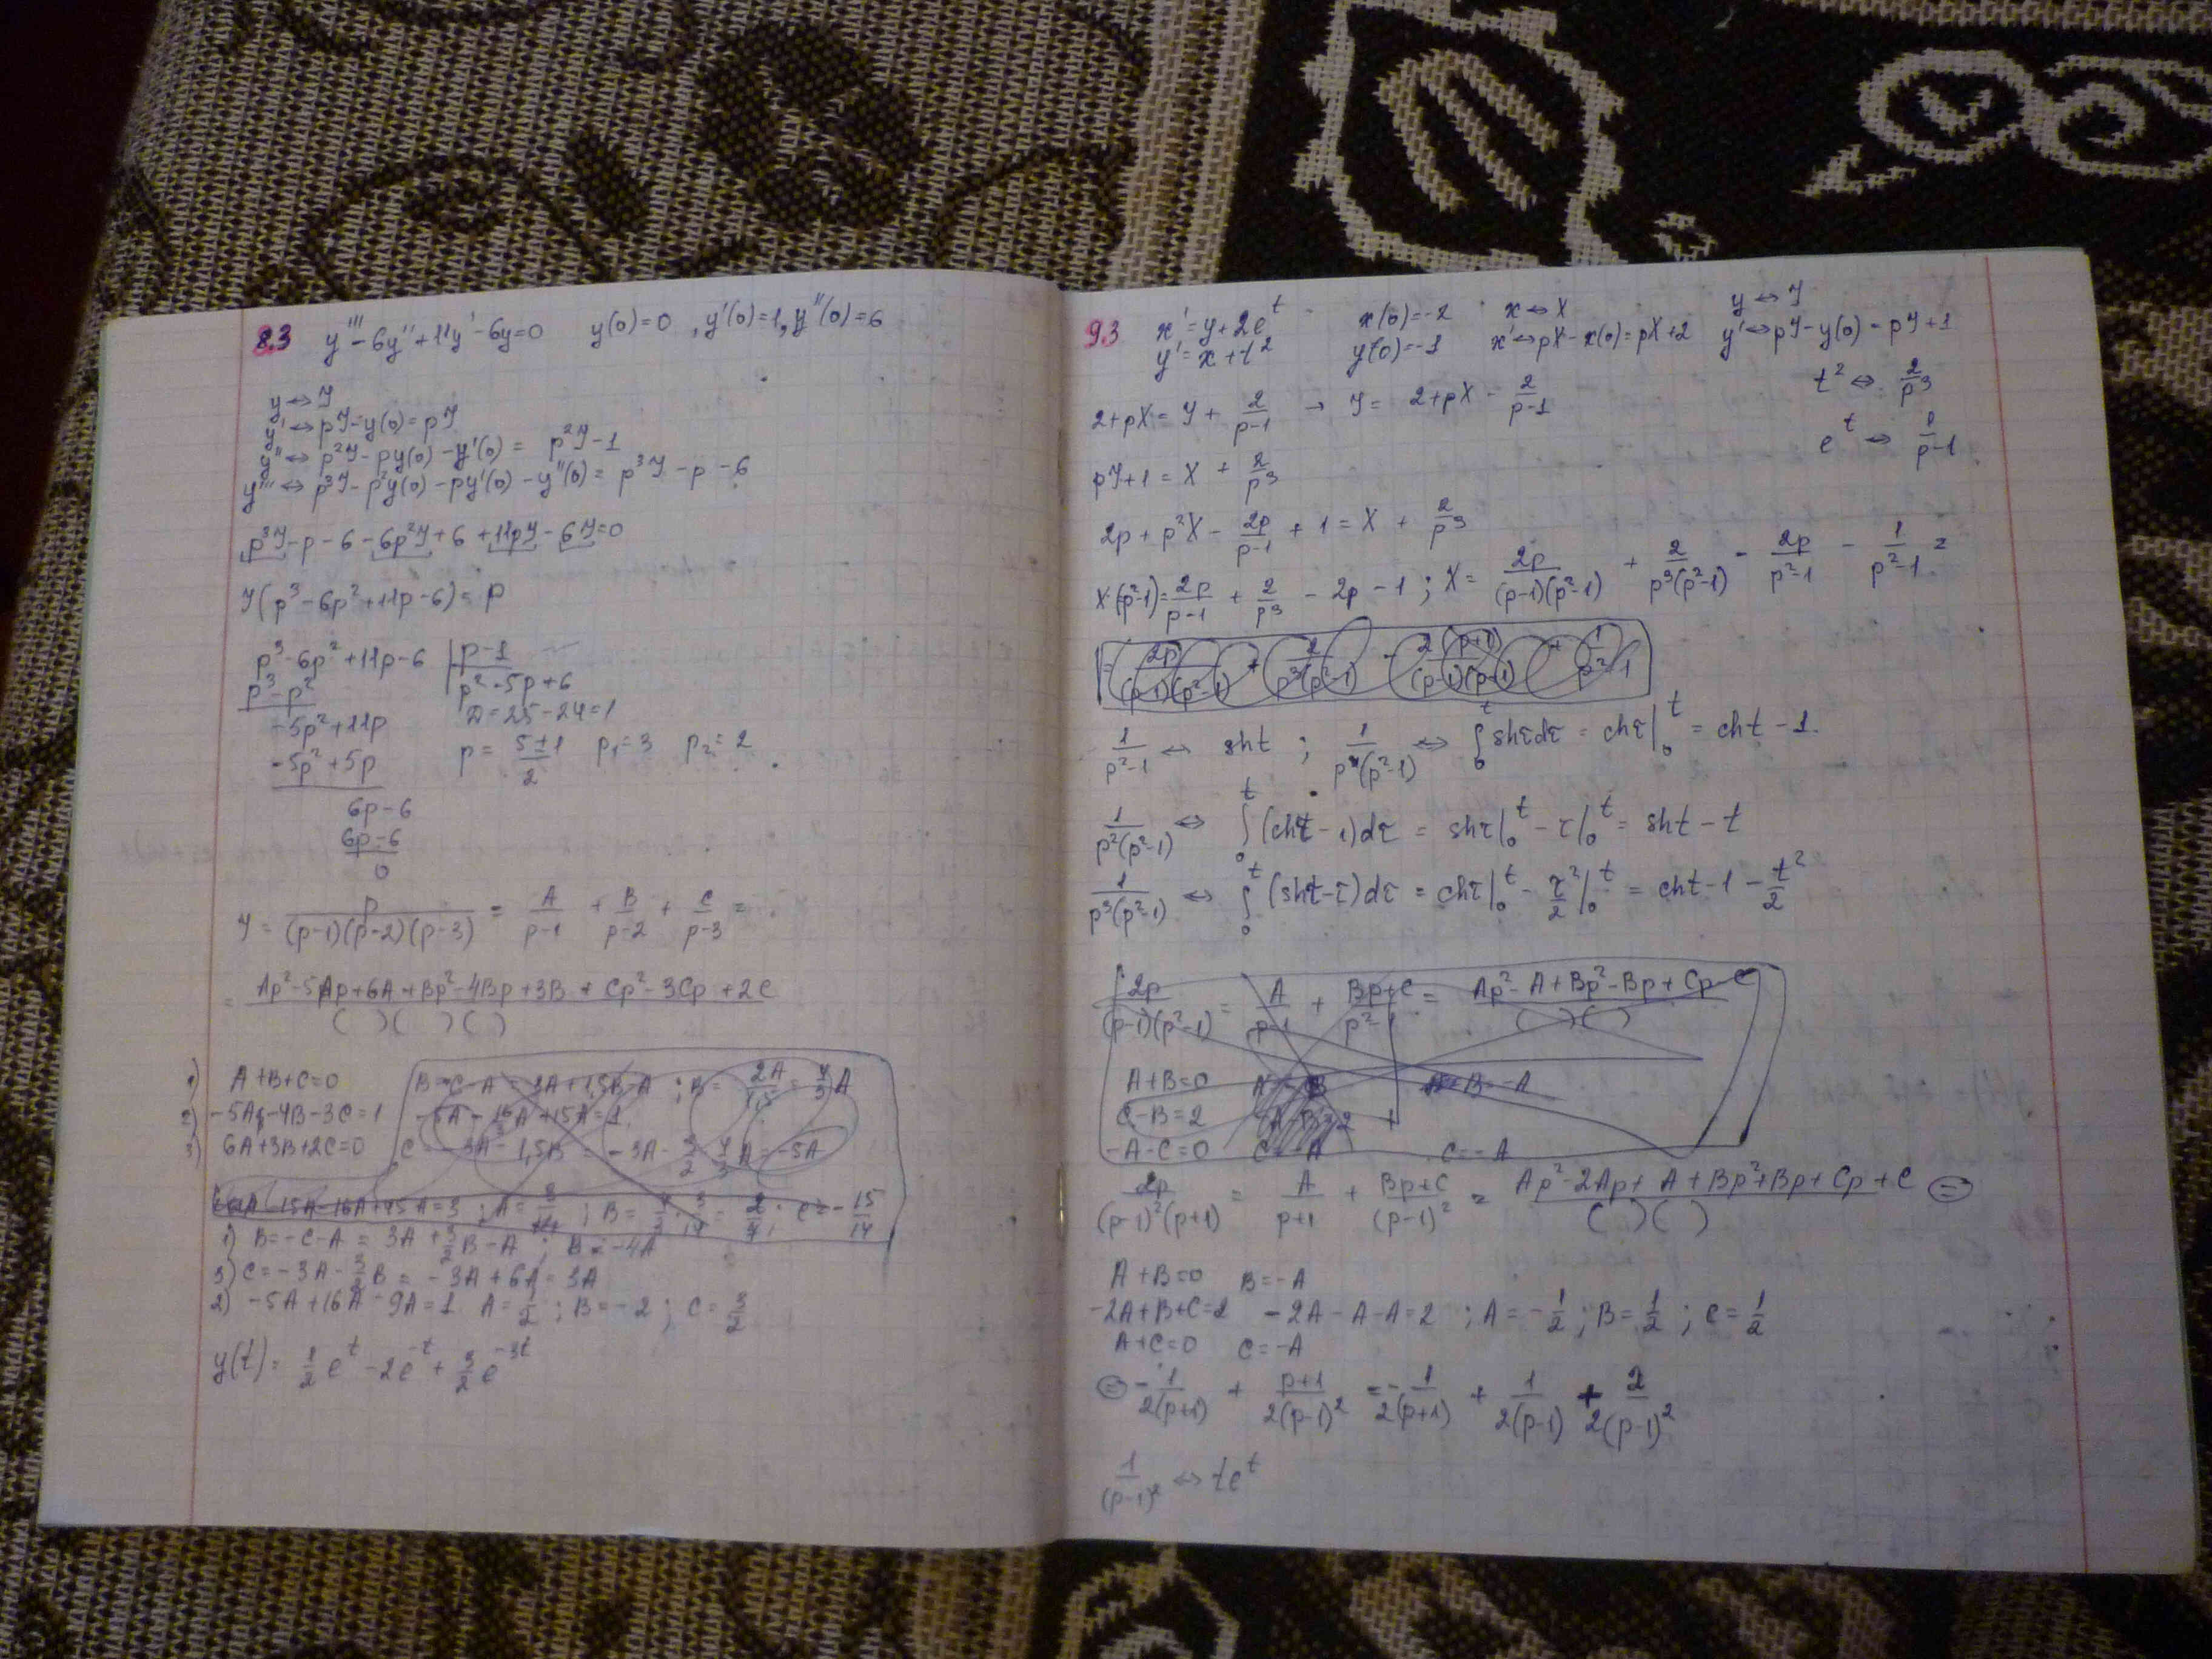 8.3 y''' - 6y'' + 11y' - 6y = 0 y(0) = 0, y'(0) = 1, y''(0) = 6
y ↔ Y
y' ↔ pY - y(0) = pY
y'' ↔ p²Y - py(0) - y'(0) = p²Y - 1
y''' ↔ p³Y - p²y(0) - py'(0) - y''(0) = p³Y - p - 6
p³Y - p - 6 - 6p²Y + 6 + 11pY - 6Y = 0
Y(p³ - 6p² + 11p - 6) = p
p³ - 6p² + 11p - 6 | p - 1
p³ - p² p² - 5p + 6
-5p² + 11p D = 25 - 24 = 1
-5p² + 5p p = (5 ± 1)/2 p₁ = 3 p₂ = 2
6p - 6
6p - 6
0
Y = p/((p-1)(p-2)(p-3)) = A/(p-1) + B/(p-2) + C/(p-3) =
= (Ap² - 5Ap + 6A + Bp² - 4Bp + 3B + Cp² - 3Cp + 2C)/(( )( )( ))
1) A + B + C = 0
2) -5A - 4B - 3C = 1
3) 6A + 3B + 2C = 0
1) B = -C - A = 3A + 3/2 B - A ; B = -4A
3) C = -3A - 3/2 B = -3A + 6A = 3A
2) -5A + 16A - 9A = 1 A = 1/2 ; B = -2 ; C = 3/2
y(t) = 1/2 e^t - 2e^-t + 3/2 e^-3t
9.3 x' = y + 2e^t x(0) = -2 x ↔ X y ↔ Y
y' = x + t² y(0) = -1 x' ↔ pX - x(0) = pX + 2 y' ↔ pY - y(0) = pY + 1
t² ↔ 2/p³
2 + pX = Y + 2/(p-1) → Y = 2 + pX - 2/(p-1)
e^t ↔ 1/(p-1)
pY + 1 = X + 2/p³
2p + p²X - 2p/(p-1) + 1 = X + 2/p³
X·(p²-1) = 2p/(p-1) + 2/p³ - 2p - 1 ; X = 2p/((p-1)(p²-1)) + 2/(p³(p²-1)) - 2p/(p²-1) - 1/(p²-1) =
1/(p²-1) ↔ sht ; 1/(p(p²-1)) ↔ ∫₀^t shτdτ = chτ|₀^t = cht - 1.
1/(p²(p²-1)) ↔ ∫₀^t (chτ - 1)dτ = shτ|₀^t - τ|₀^t = sht - t
1/(p³(p²-1)) ↔ ∫₀^t (shτ - τ)dτ = chτ|₀^t - τ²/2|₀^t = cht - 1 - t²/2
2p/((p-1)(p²-1)) = A/(p-1) + (Bp+C)/(p²-1) = (Ap² - A + Bp² - Bp + Cp - C)/(( )( ))
A + B = 0
C - B = 2
-A - C = 0 C = -A
2p/((p-1)²(p+1)) = A/(p+1) + (Bp+C)/(p-1)² = (Ap² - 2Ap + A + Bp² + Bp + Cp + C)/(( )( )) ⊜
A + B = 0 B = -A
-2A + B + C = 2 -2A - A - A = 2 ; A = -1/2 ; B = 1/2 ; C = 1/2
A + C = 0 C = -A
⊜ -1/(2(p+1)) + (p+1)/(2(p-1)²) = -1/(2(p+1)) + 1/(2(p-1)) + 2/(2(p-1)²)
1/(p-1)² ↔ te^t